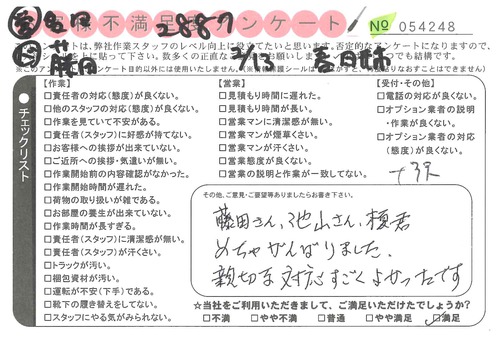 お客様不満足度アンケート
2887
№ 054248
は、弊社作業スタッフのレベル向上に役立てたいと思います。否定的なアンケートになりますので、
3/13
春日井市
藤田
チェックリスト
【作業】
□責任者の対応(態度)が良くない。
□他のスタッフの対応(態度)が良くない。
□作業を見ていて不安がある。
□責任者(スタッフ)に好感が持てない。
□お客様への挨拶が出来ていない。
□ご近所への挨拶・気遣いが無い。
□作業開始前の内容確認がなかった。
□作業開始時間が遅れた。
□荷物の取り扱いが雑である。
□お部屋の養生が出来ていない。
□作業時間が長すぎる。
□責任者(スタッフ)に清潔感が無い。
□責任者(スタッフ)が汗くさい。
□トラックが汚い。
□梱包資材が汚い。
□運転が不安(下手)である。
□靴下の履き替えをしてない。
□スタッフにやる気がみられない。
【営業】
□見積もり時間に遅れた。
□見積もり時間が長い。
□営業マンに清潔感が無い。
□営業マンが煙草くさい。
□営業マンが汗くさい。
□営業態度が良くない。
□営業の説明と作業が一致してない。
【受付・その他】
□電話の対応が良くない。
□オプション業者の説明
・作業が良くない。
□オプション業者の対応
(態度)が良くない。
その他、ご意見・ご要望等ありましたらお書き下さい。
藤田さん、池山さん、榎君
めちゃがんばりました。
親切な対応すごくよかったです
☆当社をご利用いただきまして、ご満足いただけたでしょうか?
□不満 □やや不満 □普通 □やや満足 □満足